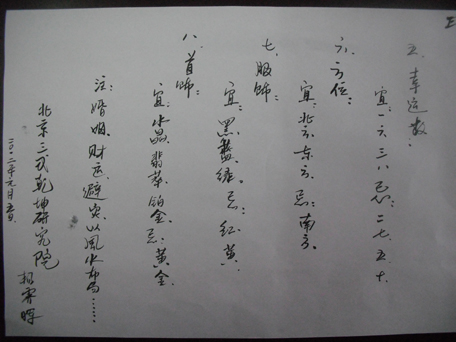 五、幸运数：
宜：一六、三八、忌：二七、五十
六、方位：
宜：北方、东方、忌：南方、
七、服饰：
宜：黑、蓝、绿、忌：红、黄、
八、首饰：
宜：水晶、翡翠、铂金、忌：黄金、
注：婚姻、财运、避灾、以風水布局……
北京三式乾坤研究院
二〇一二年元月五日